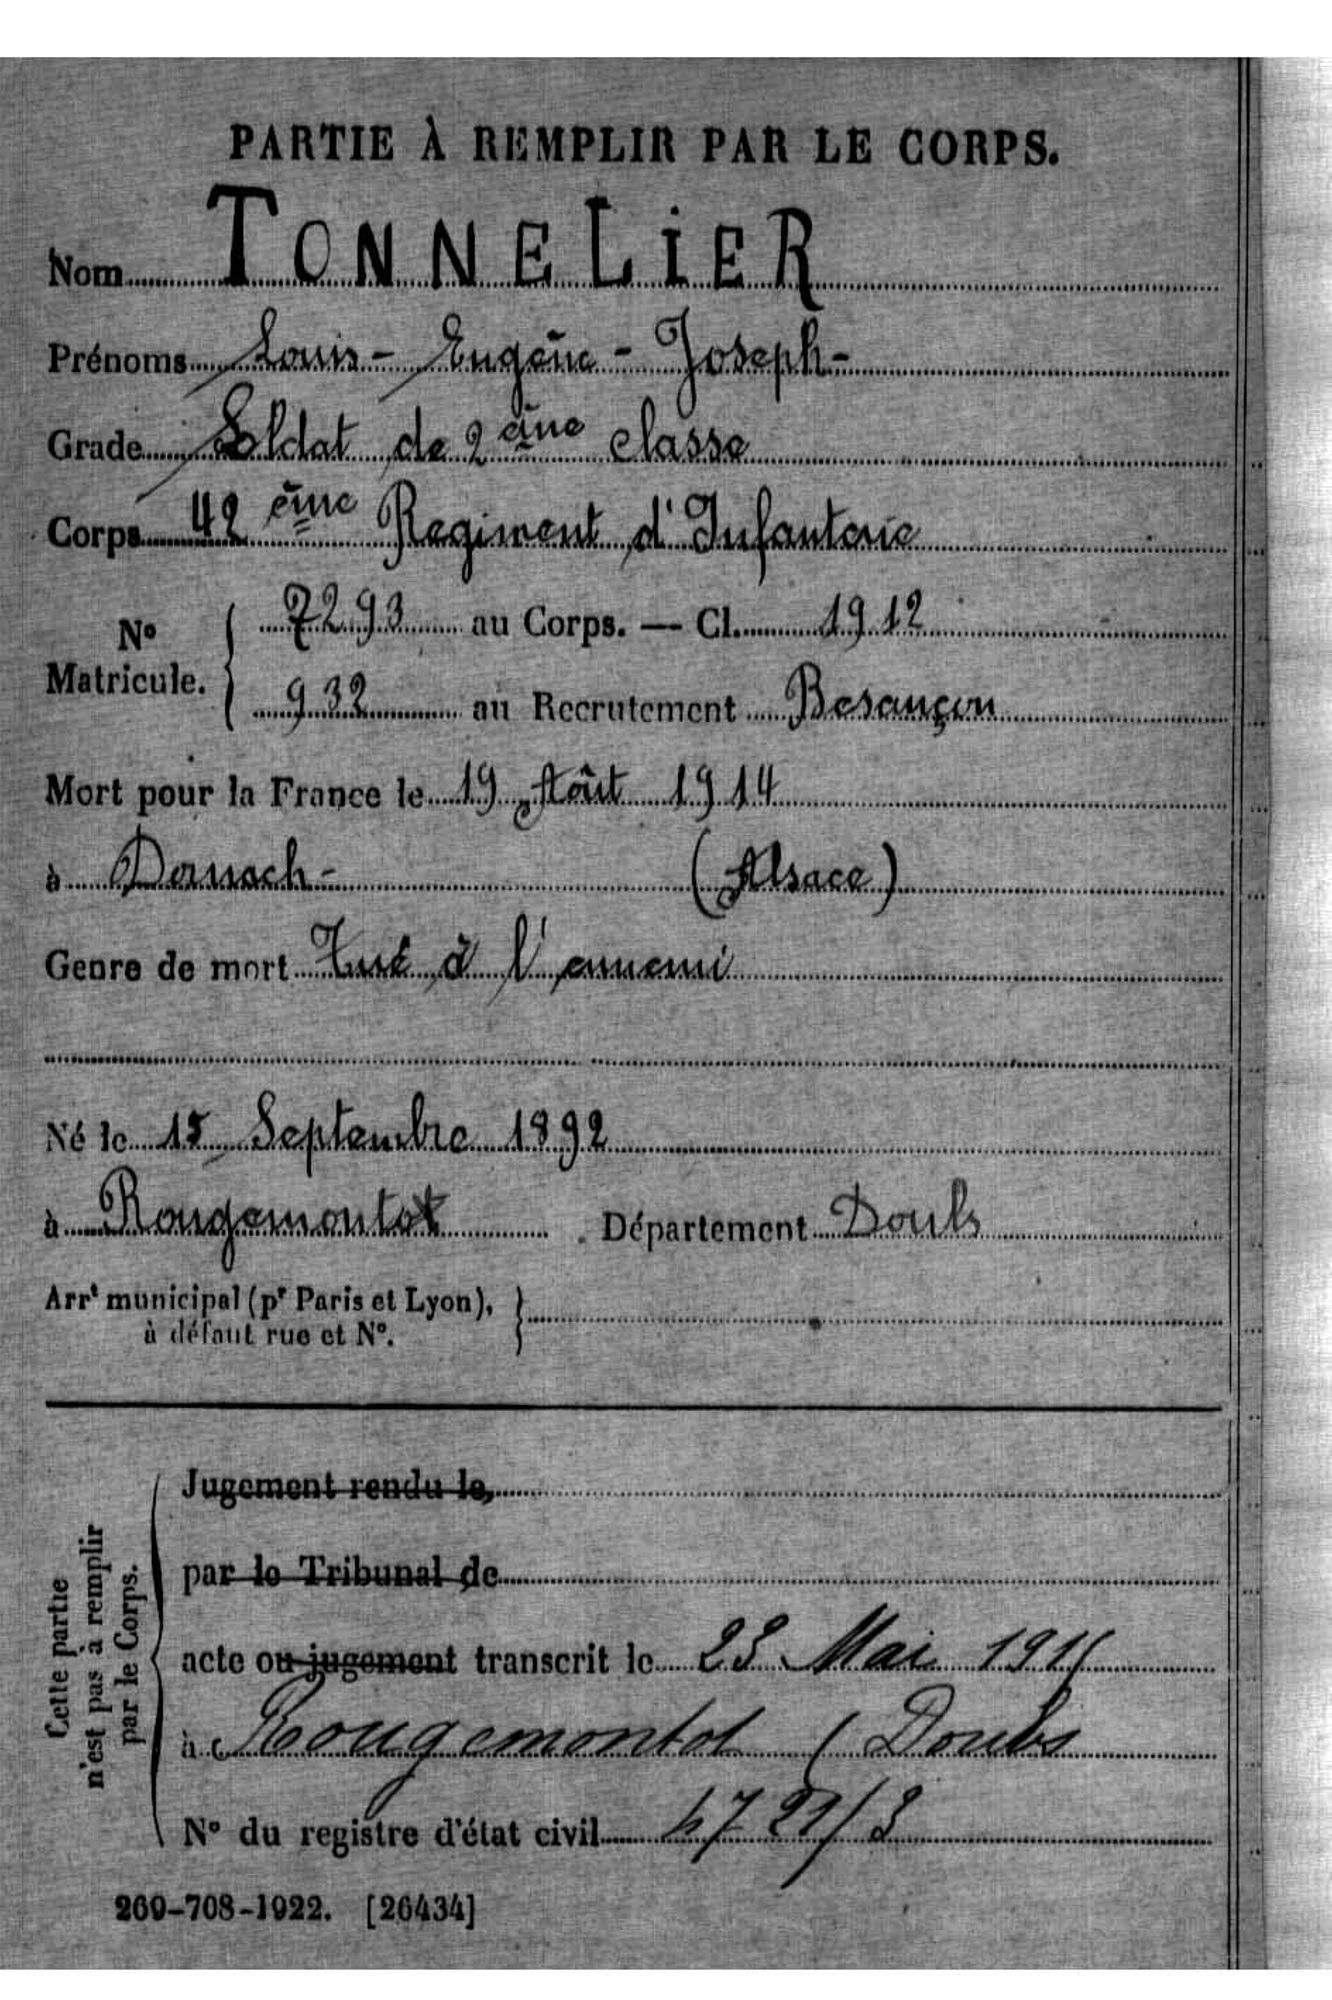 PARTIE À REMPLIR PAR LE CORPS.
Nom TONNELIER
Prénoms Louis - Eugène - Joseph -
Grade Soldat de 2 ème classe
Corps 42 ème Regiment d'Infanterie
N° Matricule. 7293 au Corps. — Cl. 1912
932 au Recrutement Besançon
Mort pour la France le 19 Août 1914
à Dornach - (Alsace)
Genre de mort Tué à l'ennemi
Né le 15 Septembre 1892
à Rougemontot Département Doubs
Arrt municipal (pr Paris et Lyon),
à défaut rue et N°.
Cette partie
n'est pas à remplir
par le Corps.
Jugement rendu le,
par le Tribunal de
acte ou jugement transcrit le 23 Mai
à Rougemontot (Doubs
N° du registre d'état civil
269-708-1922. [26434]